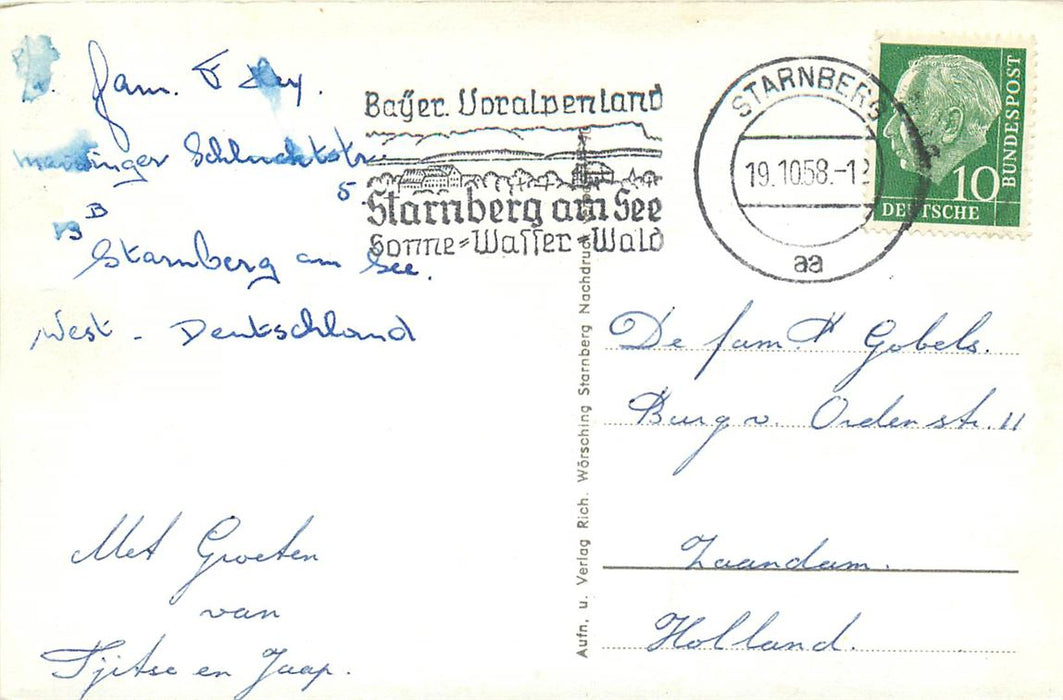 Fam. F
Schluchtstr.
5
B
13
Starnberg am See.
West - Deutschland
Met Groeten
van
Tjitse en Jaap.
Bayer. Voralpenland
Starnberg am See
Sonne=Wasser=Wald
STARNBERG
19.10.58.-12
aa
DEUTSCHE
10
BUNDESPOST
Aufn. u. Verlag Rich. Wörsching Starnberg Nachdruck
De fam. H Gobels.
Burg v. Ordenstr. 11
Zaandam.
Holland.